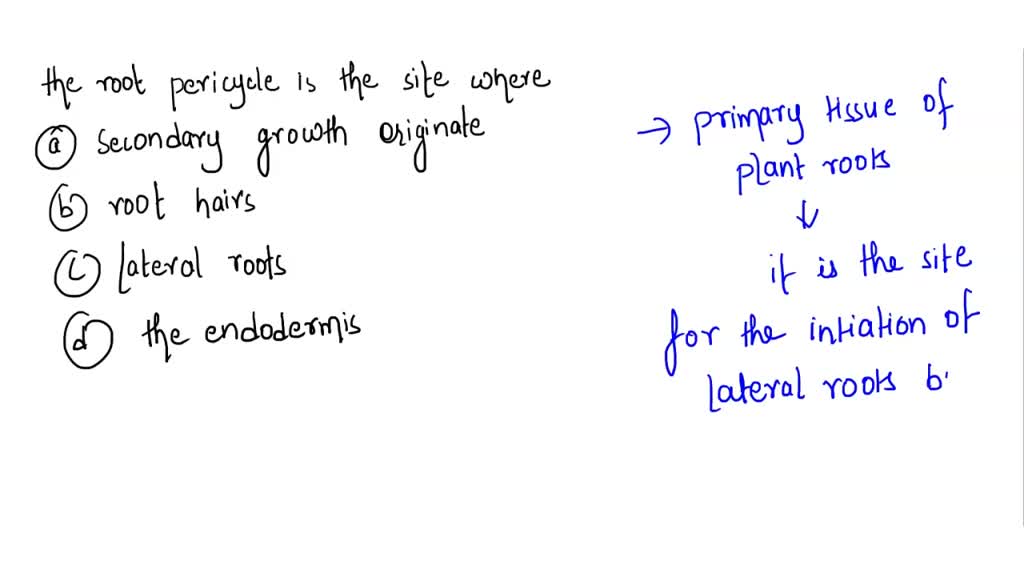 the root pericycle is the site where
(a) secondary growth originate
(b) root hairs
(c) lateral roots
(d) the endodermis
→ primary tissue of
plant roots
↓
it is the site
for the intiation of
lateral roots b